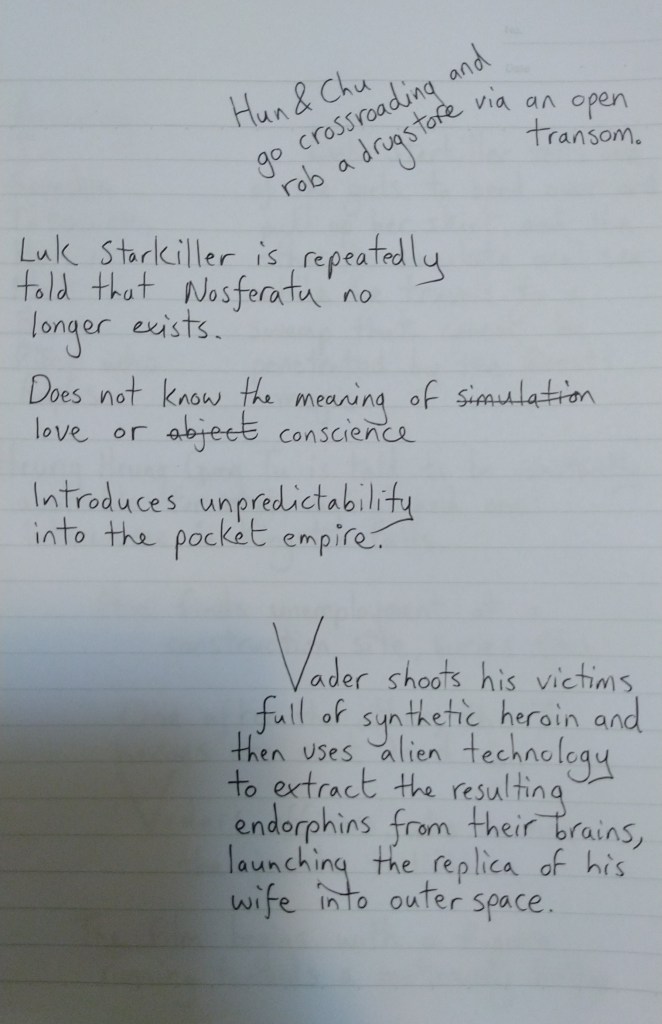 Hun & Chu
go crossroading and
rob a drugstore via an open
transom.
Luk Starkiller is repeatedly
told that Nosferatu no
longer exists.
Does not know the meaning of simulation
love or object conscience
Introduces unpredictability
into the pocket empire.
Vader shoots his victims
full of synthetic heroin and
then uses alien technology
to extract the resulting
endorphins from their brains,
launching the replica of his
wife into outer space.